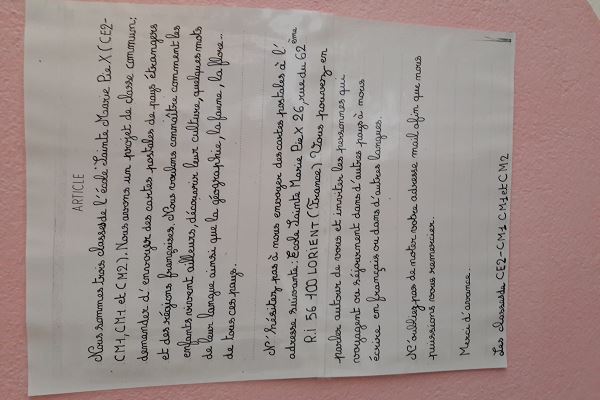 ARTICLE
Nous sommes trois classes de l'école Sainte Marie Pie X (CE2-
CM1, CM1 et CM2). Nous avons un projet de classe commun;
demander d'envoyer des cartes postales de pays étrangers
et des régions françaises. Nous voulons connaître comment les
enfants vivent ailleurs, découvrir leur culture, quelques mots
de leur langue ainsi que la géographie, la faune, la flore...
de tous ces pays.
N'hésitez pas à nous envoyer des cartes postales à l'
adresse suivante: Ecole Sainte Marie Pie X 26, rue du 62 ème
R.i 56 100 LORIENT (France) Vous pouvez en
parler autour de vous et inviter les personnes qui
voyagent ou séjournent dans d'autres pays à nous
écrire en français ou dans d'autres langues.
N'oubliez pas de noter votre adresse mail afin que nous
puissions vous remercier.
Merci d'avance.
Les classes de CE2-CM1 CM1 et CM2